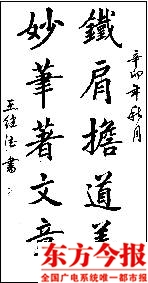 辛卯年秋月
鐵肩擔道義
妙筆著文章
王继浩書
东方今报
全国广电系统唯一都市报